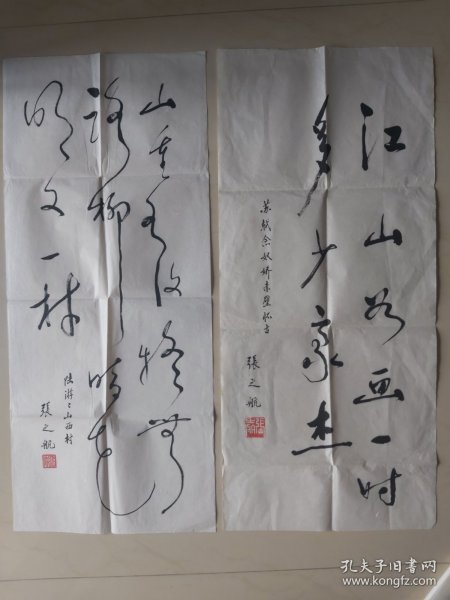 江山如画一时
多少豪杰
苏轼念奴娇赤壁怀古
張之航
山重水复疑無
路柳暗花
明又一村
陆游〻山西村
張之航
孔夫子旧书网
www.kongfz.com